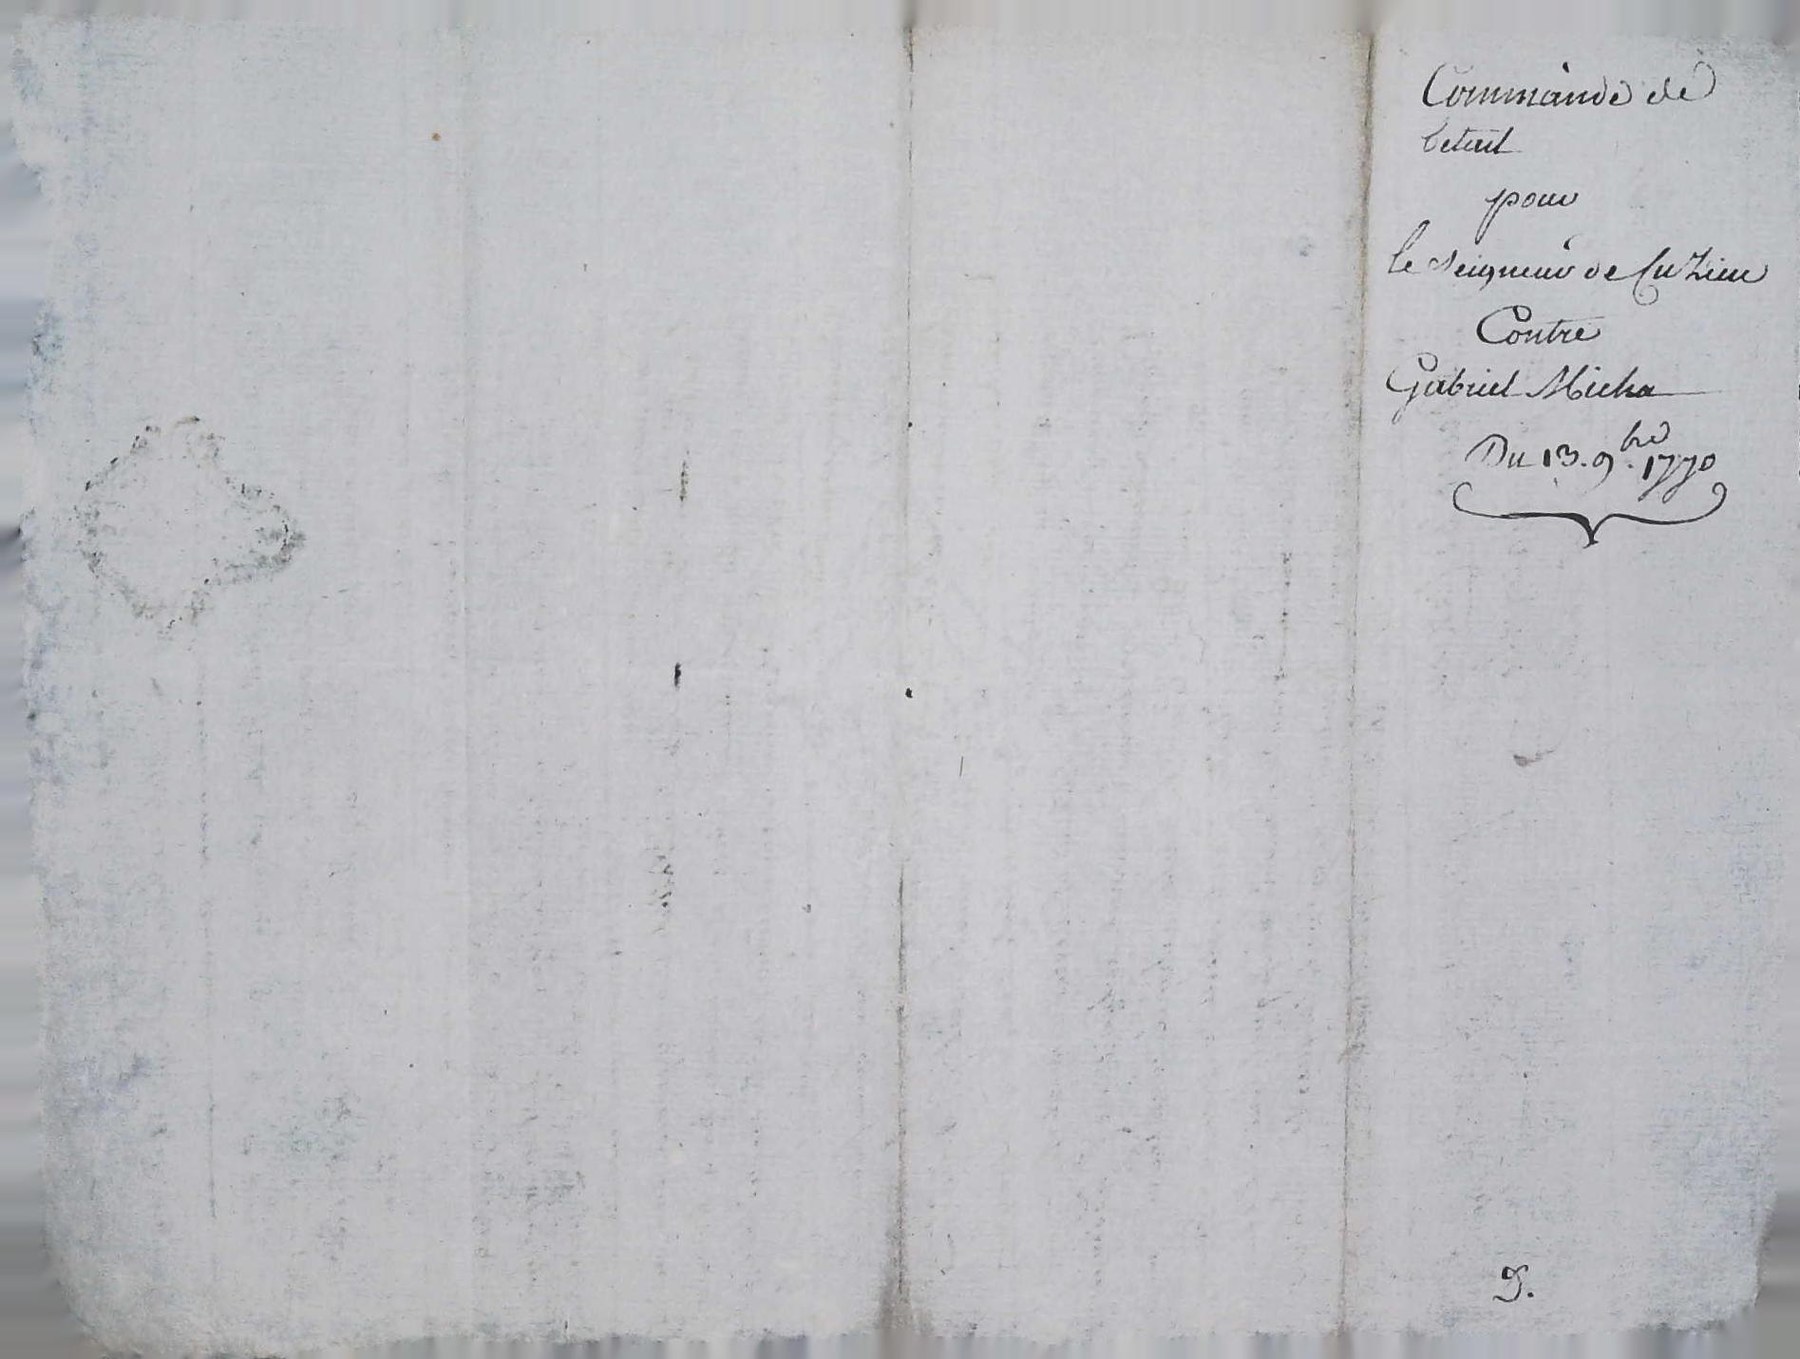 Commande de
betail
pour
le seigneur de Cuzieu
Contre
Gabriel Micha
Du 13. 9.bre 1770
9.